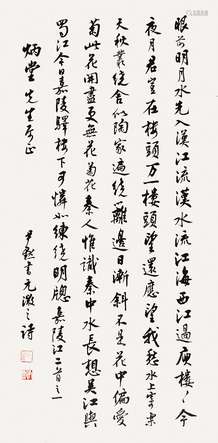 眼前明月水先入漢江流漢水流江海西江過庾樓〻今
夜月君豈在樓頭万一樓頭望還應望我愁水上寄樂
天秋叢繞舍似陶家遍繞籬邊日漸斜不是花中偏愛
菊此花開盡更無花菊花秦人惟識秦中水長想吳江與
蜀江今日嘉陵驛樓下可憐如練繞明牕嘉陵江二首之一
炳堂先生雅正
尹默書元微之詩